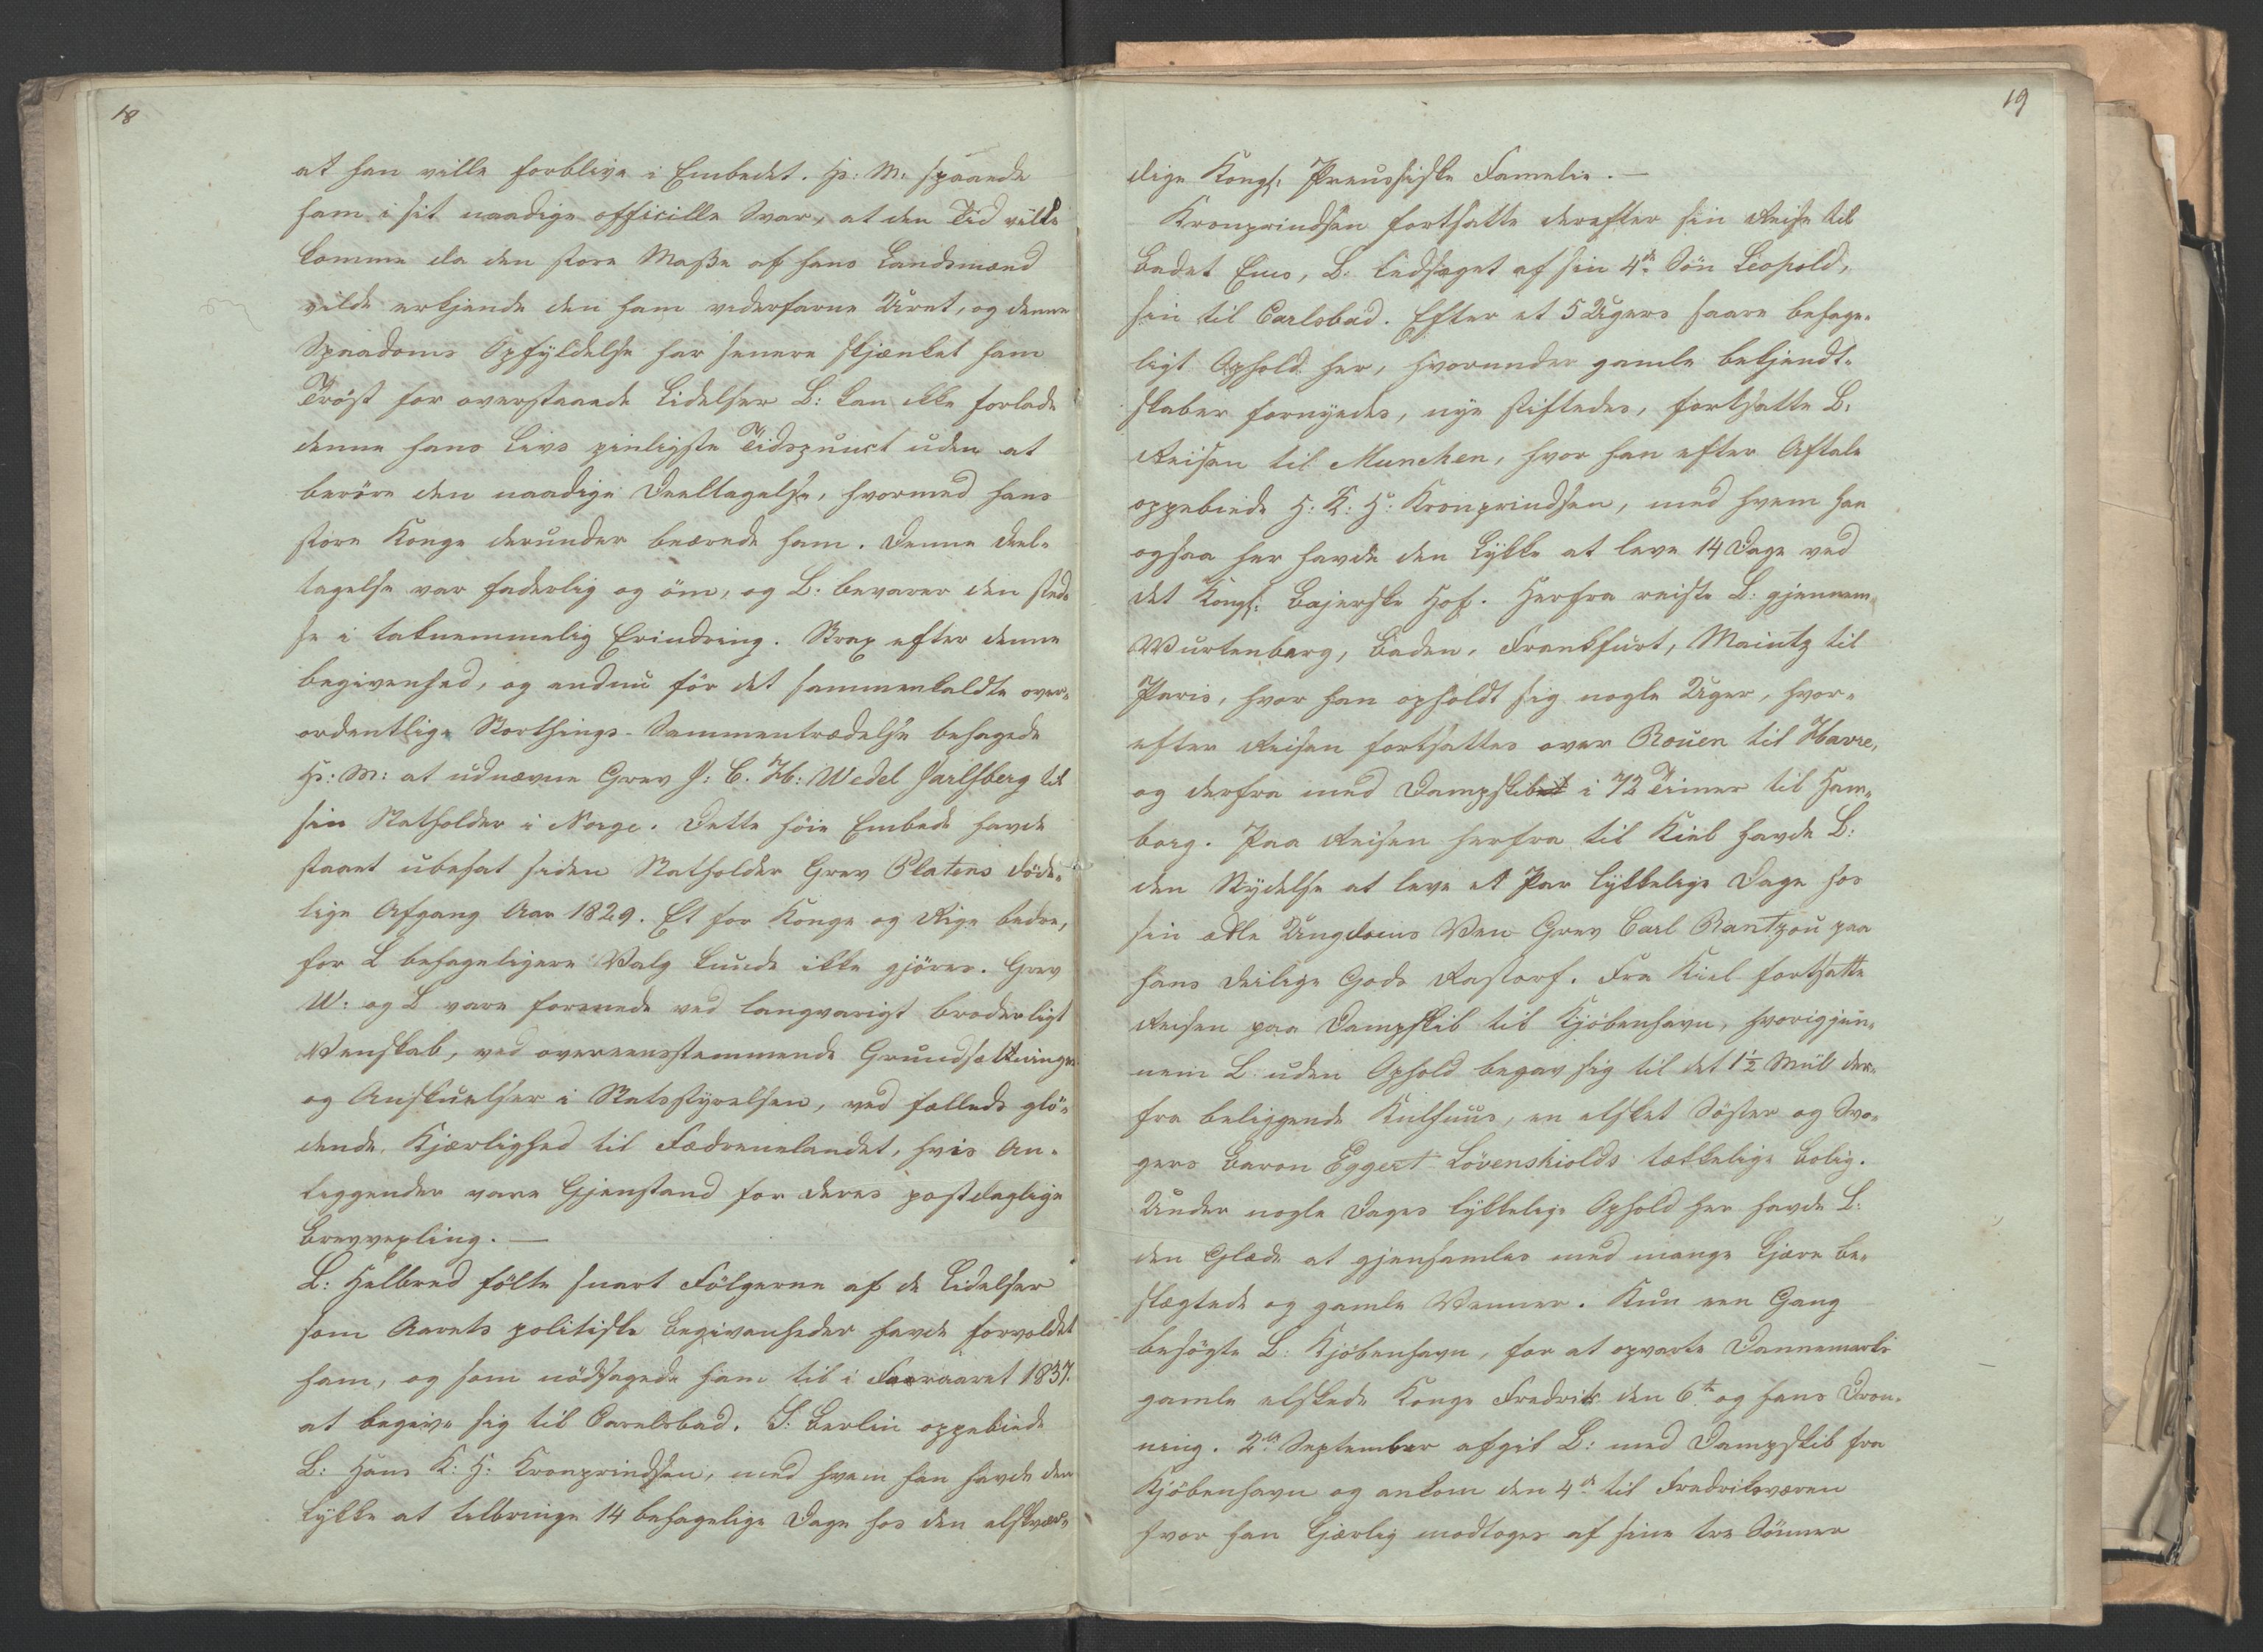 18
at han ville forblive i Embedet. Hs: M: spaaede
ham i sit naadige officielle Svar, at den Tid vilde
komme da den store Masse af hans Landsmænd
vilde erkjende den ham vederfarne Uret, og denne
Spaadoms Opfyldelse har senere skjænket ham
Tröst for overstaaede Lidelser L: kan ikke forlade
denne hans Livs pinligste Tidspunct uden at
beröre den naadige Deeltagelse, hvormed hans
store Konge derunder beærede ham. Denne Deel-
tagelse var faderlig og öm, og L: bevarer den sted-
se i taknemmelig Erindring. Strax efter denne
Begivenhed, og endnu för det sammenkaldte over-
ordentlige Storthings-Sammentrædelse behagede
Hs: M: at udnævne Grev J: C. H: Wedel Jarlsberg til
sin Statholder i Norge. Dette höie Embede havde
staaet ubesat siden Statholder Grev Platens döde-
lige Afgang Aar 1829. Et for Konge og Rige bedre,
for L behageligere Valg kunde ikke gjöres. Grev
W: og L vare forenede ved langvarigt broderligt
Venskab, ved overeensstemmende Grundsætninger
og Anskuelser i Statsstyrelsen, ved fælleds glö-
dende Kjærlighed til Fædrenelandet, hvis An-
liggender vare Gjenstand for deres postdaglige
Brevvexling. —
L: Helbred fölte snart Fölgerne af de Lidelser
som Aarets politiske Begivenheder havde forvoldet
ham, og som nödsagede ham til i Foraaret 1837.
at begive sig til Carelsbad. I Berlin oppebiede
L: Hans K: H: Kronprindsen, med hvem han havde den
Lykke at tilbringe 14 behagelige Dage hos den elskvær-
19
dige Kongl: Preussiske Famelie. —
Kronprindsen fortsatte derefter sin Reise til
Badet Ems, L: ledsaget af sin 4de Sön Leopold,
sin til Carlsbad. Efter et 5 Ugers saare behage-
ligt Ophold her, hvorunder gamle bekjendt-
skaber fornyedes, nye stiftedes, fortsatte L:
Reisen til Munchen, hvor han efter Aftale
oppebiede H: K: H: Kronprindsen, med hvem han
ogsaa her havde den Lykke at leve 14 Dage ved
det Kongl: Bajerske Hof. Herfra reiste L: gjennem
Wurtenberg, Baden, Frankfurt, Maintz til
Paris, hvor han opholdt sig nogle Uger, hvor-
efter Reisen fortsattes over Rouen til Havre,
og derfra med Dampskib i 72 Timer til Ham-
borg. Paa Reisen herfra til Kiel havde L:
den Nydelse at leve et Par lykkelige Dage hos
sin ædle Ungdoms Ven Grev Carl Rantzou paa
hans deilige Gods Rastorf. Fra Kiel fortsatte
Reisen paa Dampskib til Kjöbenhavn, hvorigjen-
nem L uden Ophold begav sig til det 1½ Miil der-
fra beliggende Kulhuus, en elsket Söster og Svo-
gers Baron Eggert Lövenskiolds tækkelige Bolig.
Under nogle Dages lykkelige Ophold her havde L:
den Glæde at gjensamles med mange kjære be-
slægtede og gamle Venner. Kun een Gang
besögte L: Kjöbenhavn, for at opvarte Dannemarks
gamle elskede Konge Fredrik den 6te og hans Dron-
ning. 2den September afgik L: med Dampskib fra
Kjöbenhavn og ankom den 4de til Fredriksværen
hvor han kjærlig modtoges af sine tre Sönner